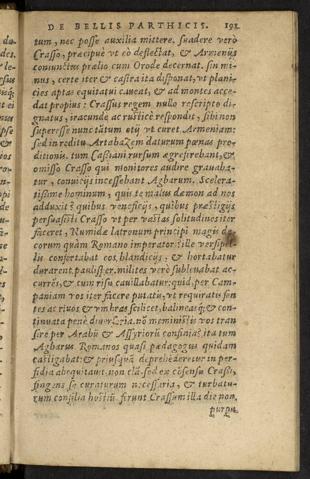 DE BELLIS PARTHICIS. 191
tum, nec posse auxilia mittere, suadere verò
Crasso, præcipuè vt eò deflectat, & Armenijs
coniunctim prælio cum Orode decernat. sin mi
nus, certe iter & castra ita disponat, vt plani-
cies aptas equitatui caueat, & ad montes acce-
dat propius: Crassus regem nullo rescripto di-
gnatus, iracunde ac rusticè respondit, sibi non
superesse nunc otiũ vt curet Armeniam:
sed in reditu Artabazem daturum pœnas pro-
ditionis. tum Cassiani rursum ægre firebant, &
omisso Crasso qui monitores audire grauaba-
tur, conuicijs incessebant Agbarum. Scelera-
tissime hominum, qui te malus dæmon ad nos
adduxit? quibus veneficijs, quibus præstigijs
persuasisti Crasso vt per vastas solitudines iter
faceret, Numidæ latronum principi magis de
corum quàm Romano imperatori? ille versipel
lis confortabat eos blandicijs, & hortabatur
durarent paulisper. milites verò subleuabat ac
currẽs, & cum risu cauillabatur: quid, per Cam-
paniam vos iter facere putatis, vt requiratis fon
tes ac riuos & vmbras scilicet, balneaq; & con-
tinuata penè diuersoria. nõ meministis vos tran
sire per Arabũ & Assyriorũ confinia? ita tum
Agbarus Romanos quasi pædagogus quidam
castigabat: & priusquã deprehẽderetur in per-
fidia abequitauit. non clã. sed ex cõsensu Crassi,
fingens se curaturum necessaria, & turbatu-
rum consilia hostiũ. ferunt Crassum illa die non
purpu.